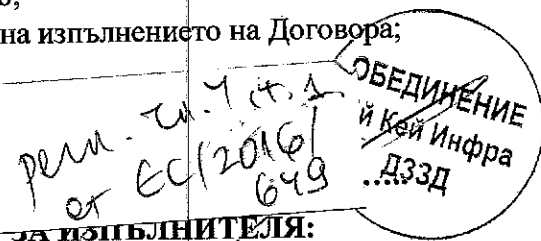 на изпълнението на Договора;
ОБЕДИНЕНИЕ
й Кей Инфра
ДЗЗД
регл. чл. 4, т. 1
от ЕС/2016/
649
ЗА ИЗПЪЛНИТЕЛЯ: